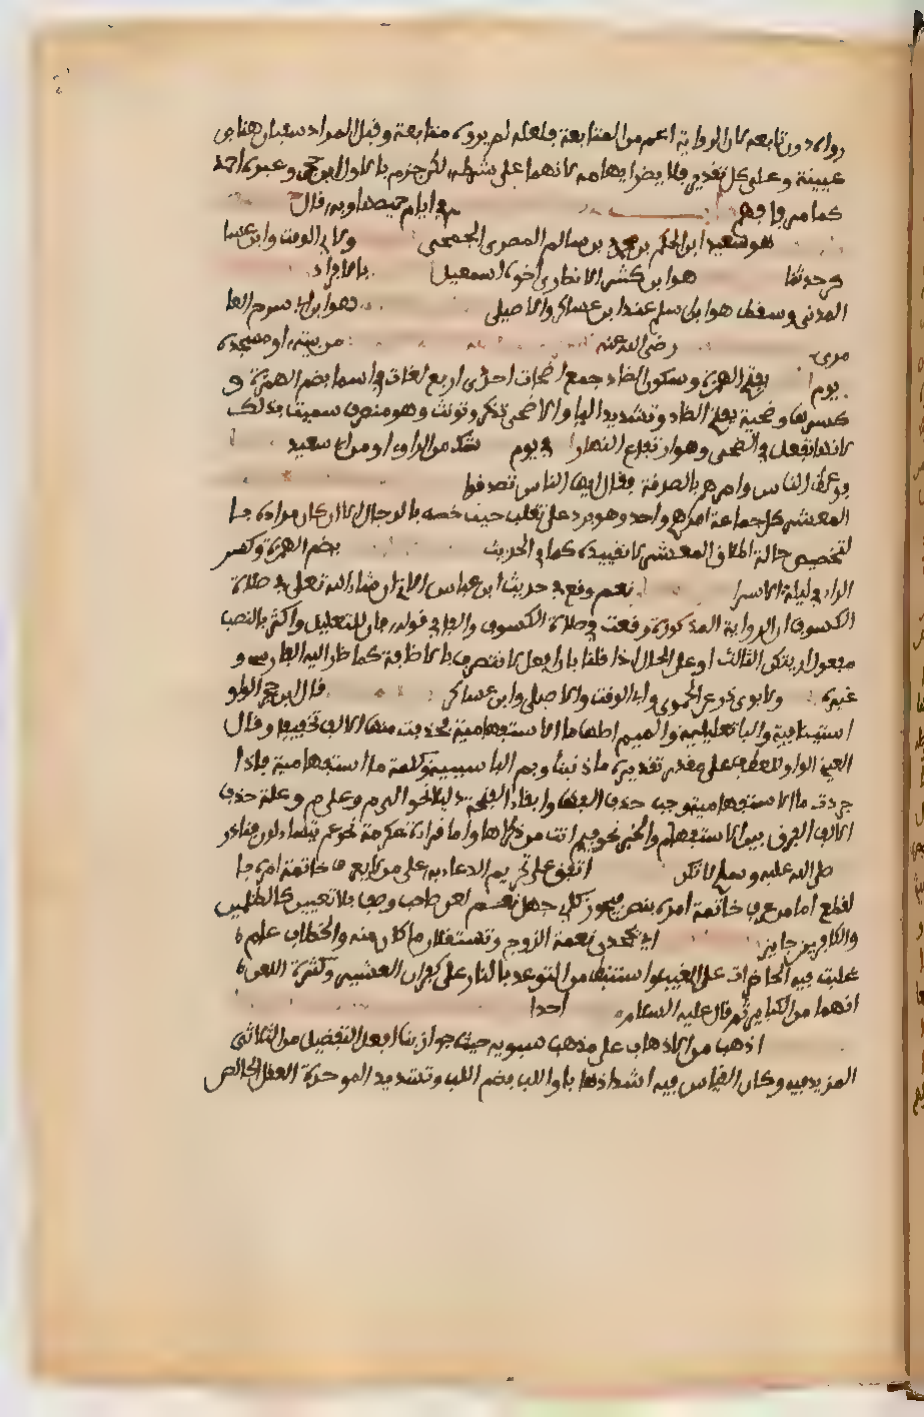 رواه دون تابعه لان الرواية اعم من المتابعة فلعله لم يروه متابعة وقيل المراد سفيان هنا بن
عيينة وعلى كل تقدير فلا يضر ابهامه لانهما على شرطه لكن جزم بالاول ابن حجر وغيره احمد
كما مر في ايام حيضها وبه قال
هو سعيد ابن الحكم بن محمد بن سالم المصري الجمحي ولابي الوقت وابن عسا
كر حدثنا هو ابن كثير الانصاري اخو اسمعيل بالافراد
المدني وسقط هو ابن اسلم عند ابن عساكر والاصيلي
رضي الله عنه من بيته او مسجده
يوم بفتح الهمزة وسكون الضاد جمع اضحات احدى اربع لغات في اسمها بضم الهمزة و
كسرها وضحية بفتح الضاد وتشديد الياء والاضحى تذكر وتونث وهو منصرف سميت بذلك
لانها تفعل في الضحى وهو ارتفاع النهار في يوم شك من الراوي او من ابي سعيد
فوعظ الناس وامرهم بالصدقة فقال ايها الناس تصدقوا
المعشر كل جماعة امرهم واحد وهو يرد على ثعلب حيث خصه بالرجال الا ان كان مراده با
لتخصيص حالة اطلاق المعشر لا تقييده كما في الحديث بضم الهمزة وكسر
الراء في ليلة الاسرا نعم وقع في حديث ابن عباس الاتي ان شاء الله تعلى في صلاة
الكسوف ان الرواية المذكورة وقعت في صلاة الكسوف والفا في قوله فان للتعليل واكثر بالنصب
مفعول اريتكن الثالث او على الحال اذا قلنا بان افعل لا تتعرف بالاضافة كما صار اليه الفارسي و
غيره ولابوي ذر عن الحموي وابي الوقت والاصيلي وابن عساكر قال ابن حجر الواو
استينافية والبا تعليلية والميم اصلها ما الاستفهامية فحذفت منها الالف تخفيفا وقال
العيني الواو للعطف على مقدر تقديره ما ذنبنا وبم البا سببية وكلمة ما استفهامية فاذا
جرت ما الاستفهامية وجب حذف الفها وابقاء الفتحة دليلا نحو الى م وعلى م وعلة حذف
الالف الفرق بين الاستفهام والخبر نحو فيم انت من ذكراها واما قراءة عكرمة نحو عم يتساءلون فنادر
صلى الله عليه وسلم لانكن اتفق على تحريم الدعاء به على من لا يعرف خاتمة امره با
لقطع اما من عرف خاتمة امره بنص فيجوز كابي جهل نعم لعن صاحب وصف بلا تعيين كالظالمين
والكافرين جايز اي تجحدن نعمة الزوج وتستقللن ما كان منه والخطاب عام
غلبت فيه الحاضرات على الغيب واستنبط من التوعد بالنار على كفران العشير وكثرة اللعن
انهما من الكباير ثم قال عليه السلام احدا
اذهب من الاذهاب على مذهب سيبويه حيث جوز بناء افعل التفضيل من الثلاثي
المزيد فيه وكان القياس فيه اشد اذهابا واللب بضم اللام وتشديد الموحدة العقل الخالص